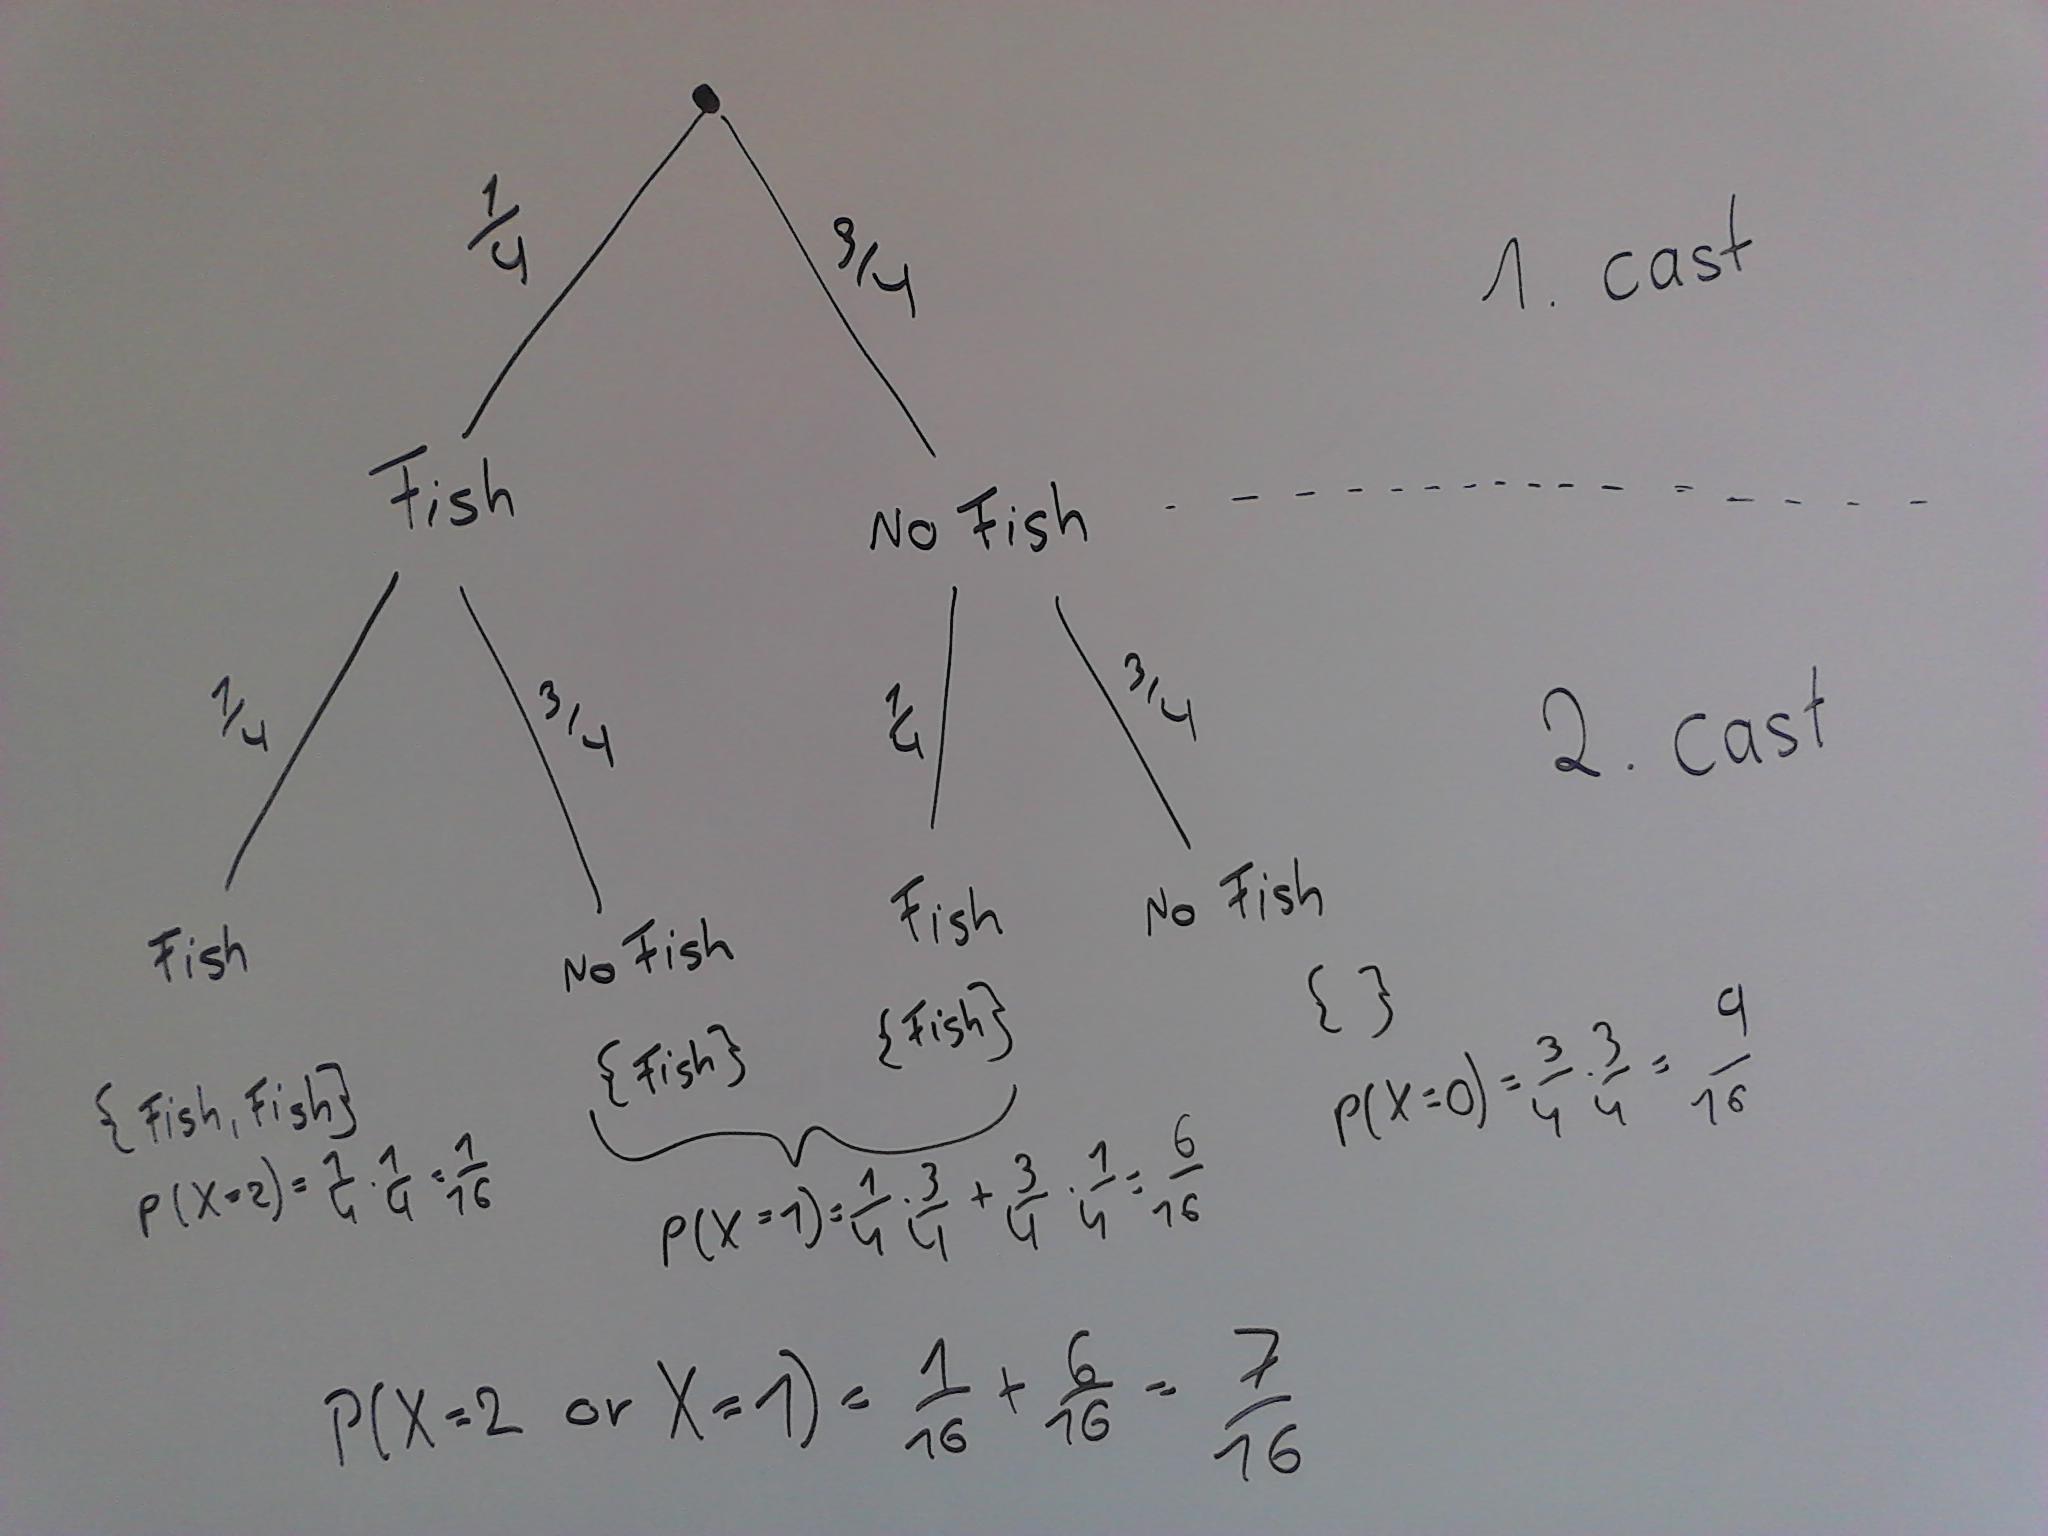 1/4
3/4
1. cast
Fish
No Fish
1/4
3/4
1/4
3/4
2. cast
Fish
No Fish
Fish
No Fish
{Fish, Fish}
{Fish}
{Fish}
{ }
P(X=2)=1/4·1/4=1/16
P(X=1)=1/4·3/4+3/4·1/4=6/16
P(X=0)=3/4·3/4=9/16
P(X=2 or X=1)=1/16+6/16=7/16